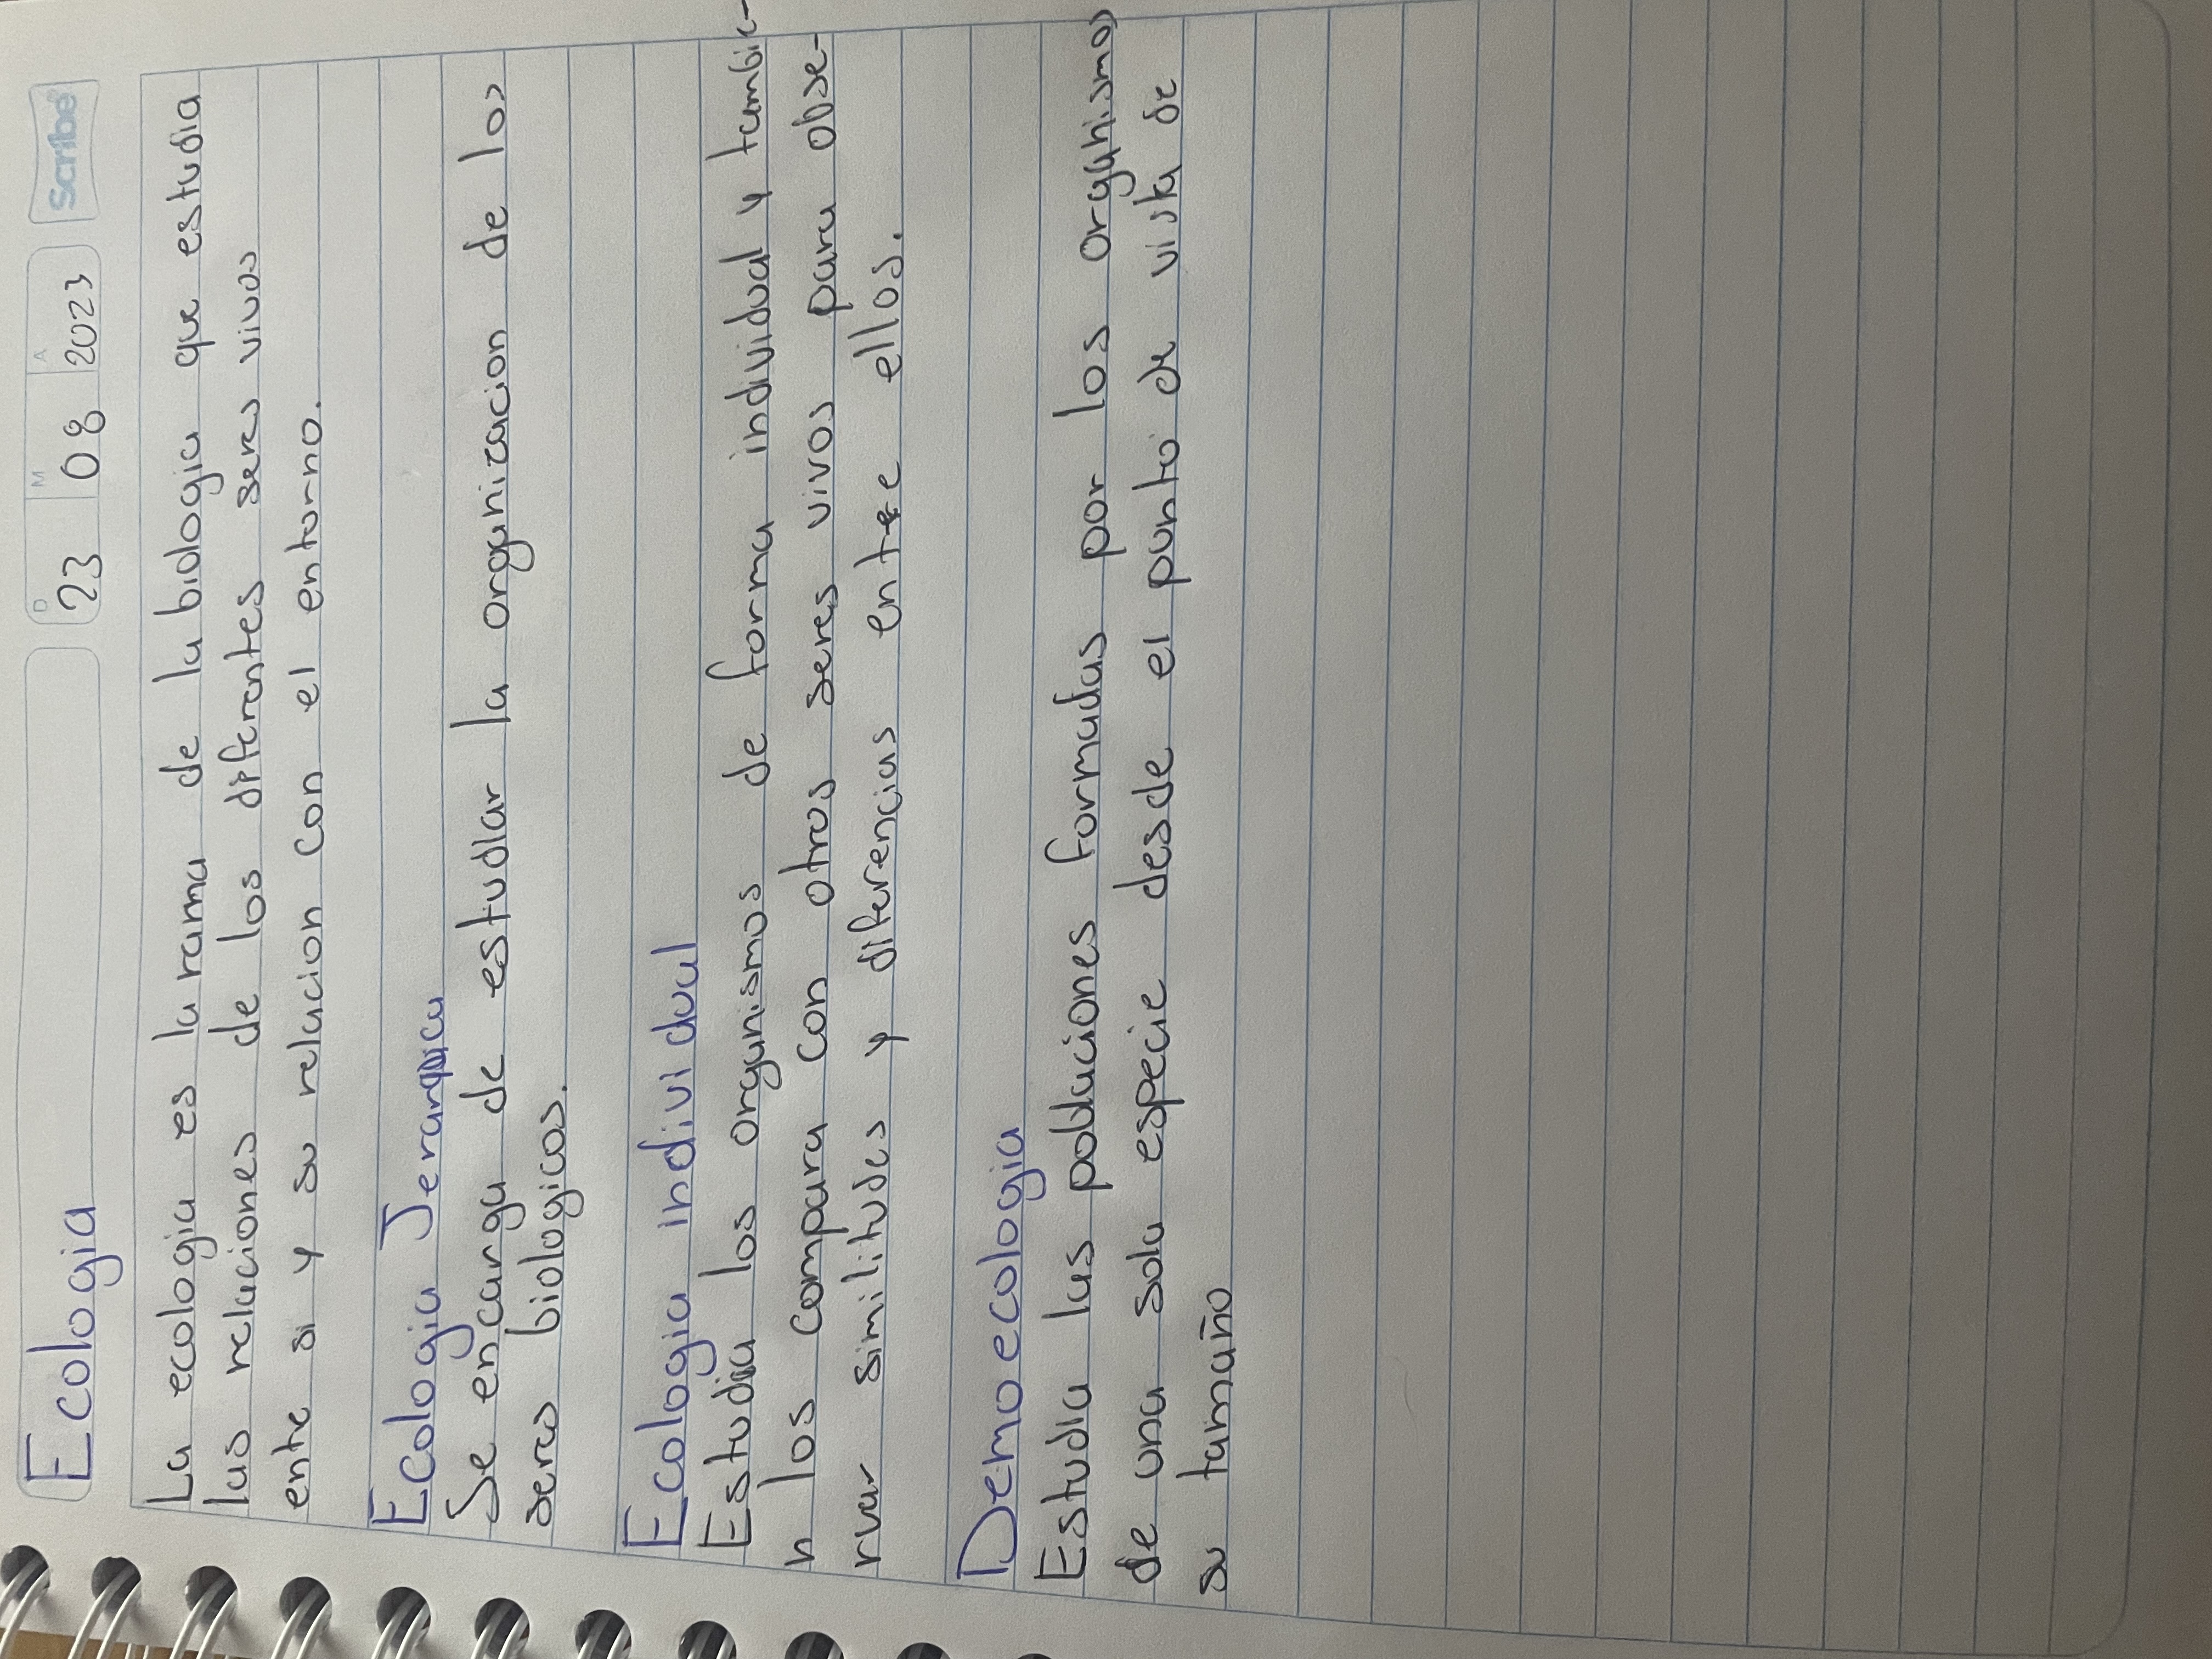 Ecologia
D M A
23 08 2023
Scribe
La ecologia es la rama de la biologia que estudia
las relaciones de los diferentes seres vivos
ente si y su relacion con el entorno.
Ecologia
Se encarga de estudiar la organizacion de los
seres biologicos.
Ecologia individual
Estudia los organismos de forma individual y tambie-
n los compara con otros seres vivos para obse-
rvar similitudes y diferencias ente ellos.
Demoecologia
Estudia las poblaciones formadas por los organismos
de una sola especie desde el punto de vista de
su tamaño